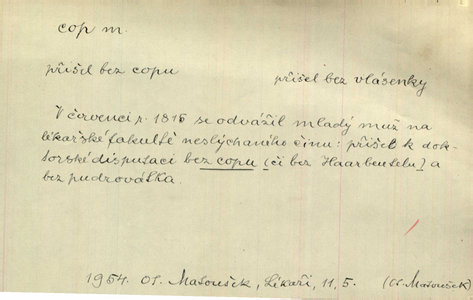 cop m.
přišel bez copu
přišel bez vlásenky
V červenci r. 1816 se odvážil mladý muž na
lékařské fakultě neslýchaného činu: přišel k dok-
torské disputaci bez copu [či bez Haarbeutelu] a
bez pudrovátka.
1954. O. Matoušek, Lékaři, 11, 5. (O. Matoušek)